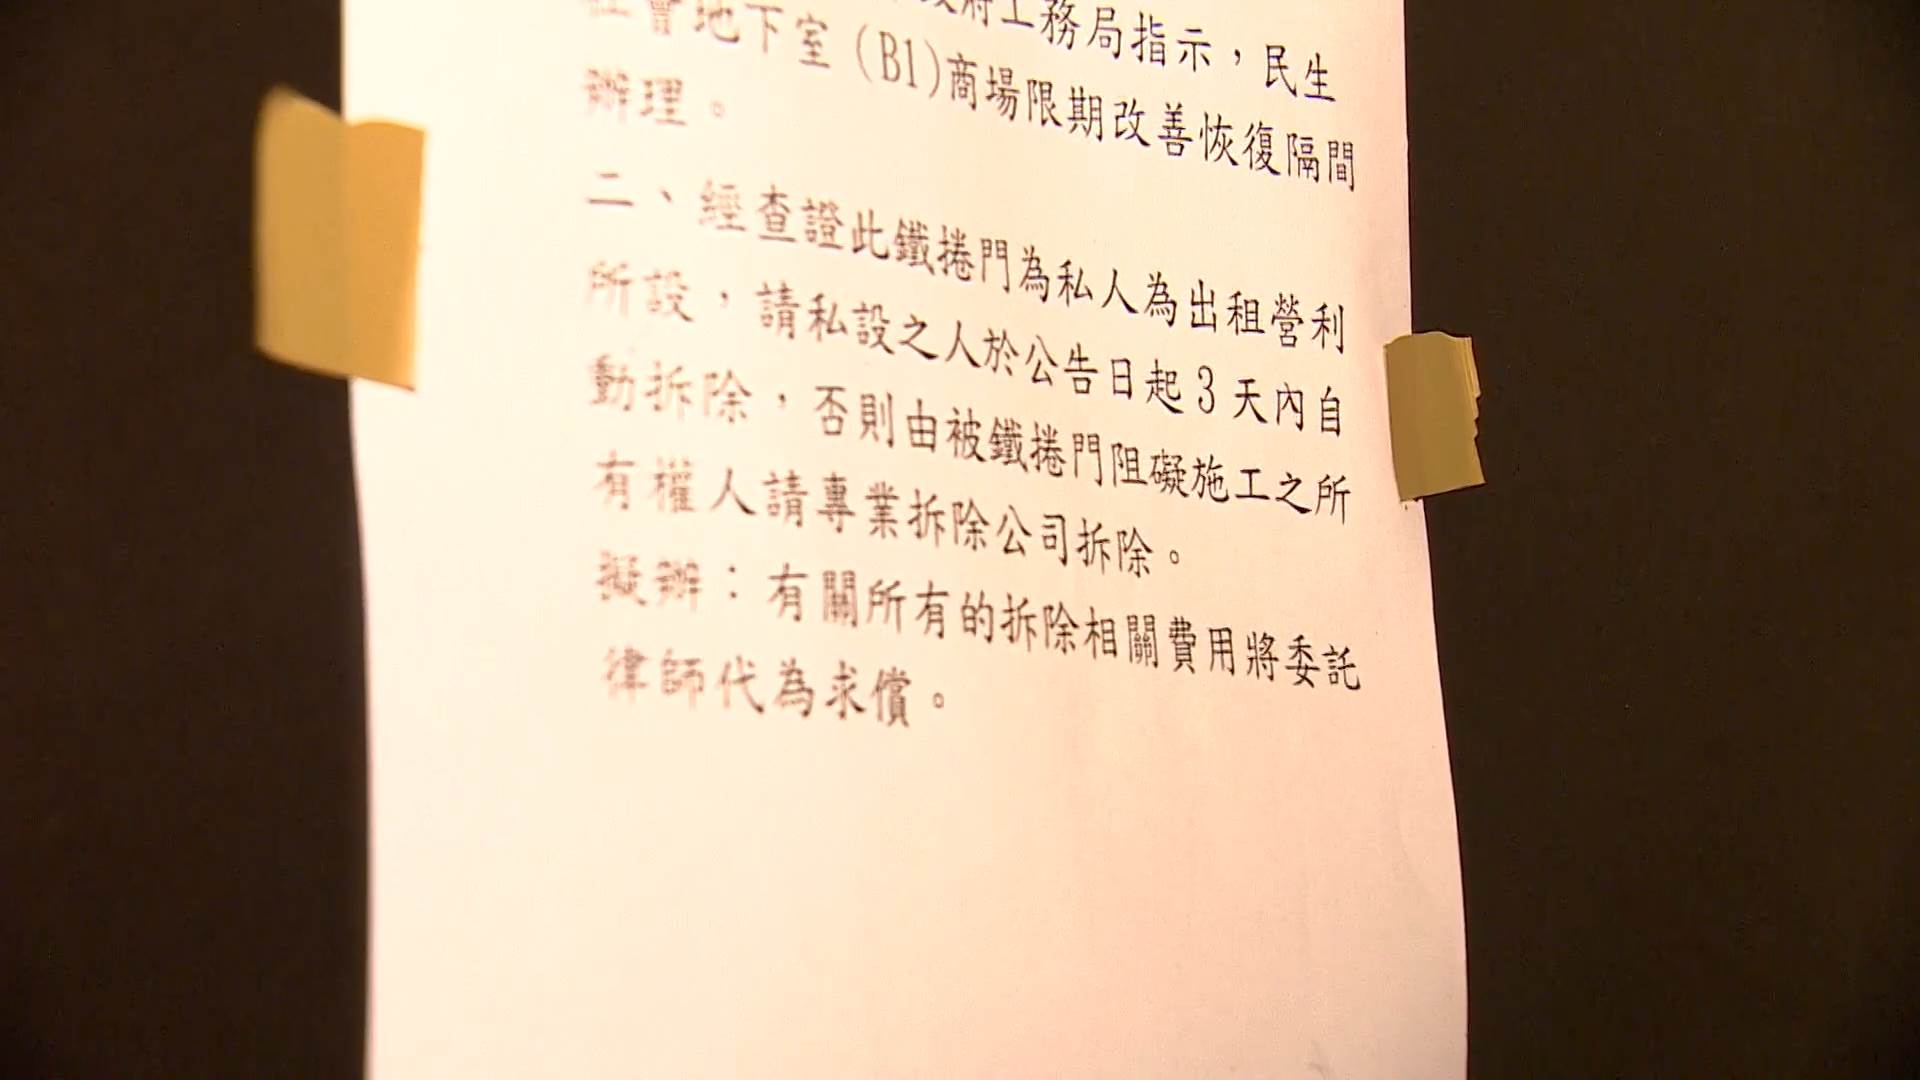 政府工務局指示，民生
社會地下室(B1)商場限期改善恢復隔間
辦理。
二、經查證此鐵捲門為私人為出租營利
所設，請私設之人於公告日起3天內自
動拆除，否則由被鐵捲門阻礙施工之所
有權人請專業拆除公司拆除。
擬辦：有關所有的拆除相關費用將委託
律師代為求償。